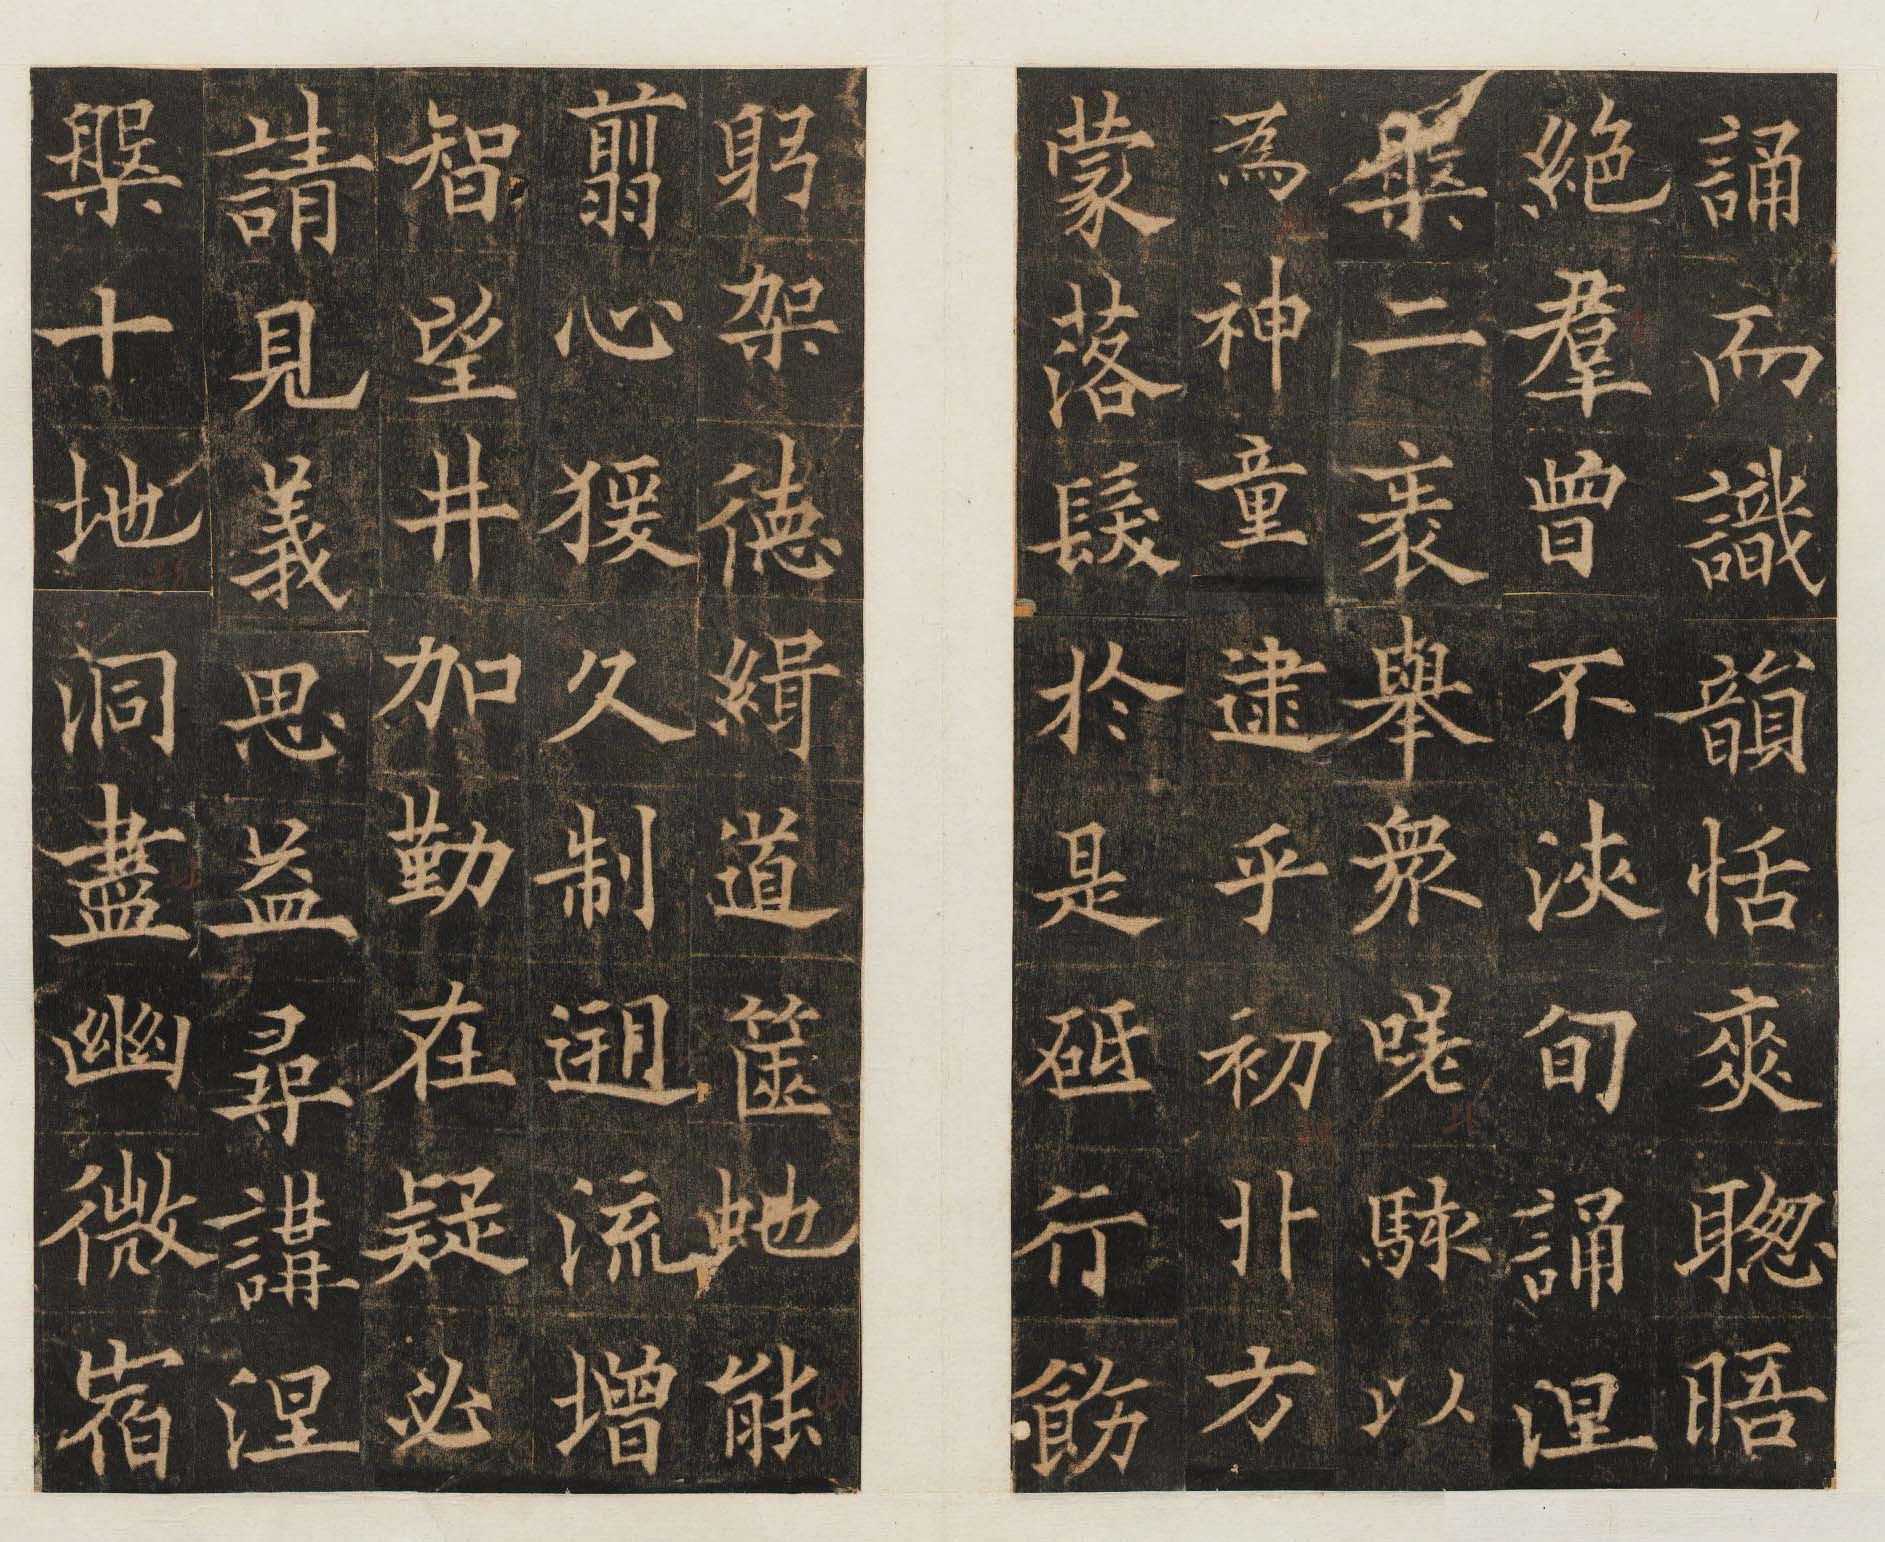 誦而識韻恬爽聰晤
絕羣曾不浹旬誦涅
槃二袠舉眾嗟駭以
為神童逮乎初丱方
蒙落髮於是砥行飭
躬架德緝道篋虵能
翦心猨久制遡流增
智望井加勤在疑必
請見義思益尋講涅
槃十地洞盡幽微宿